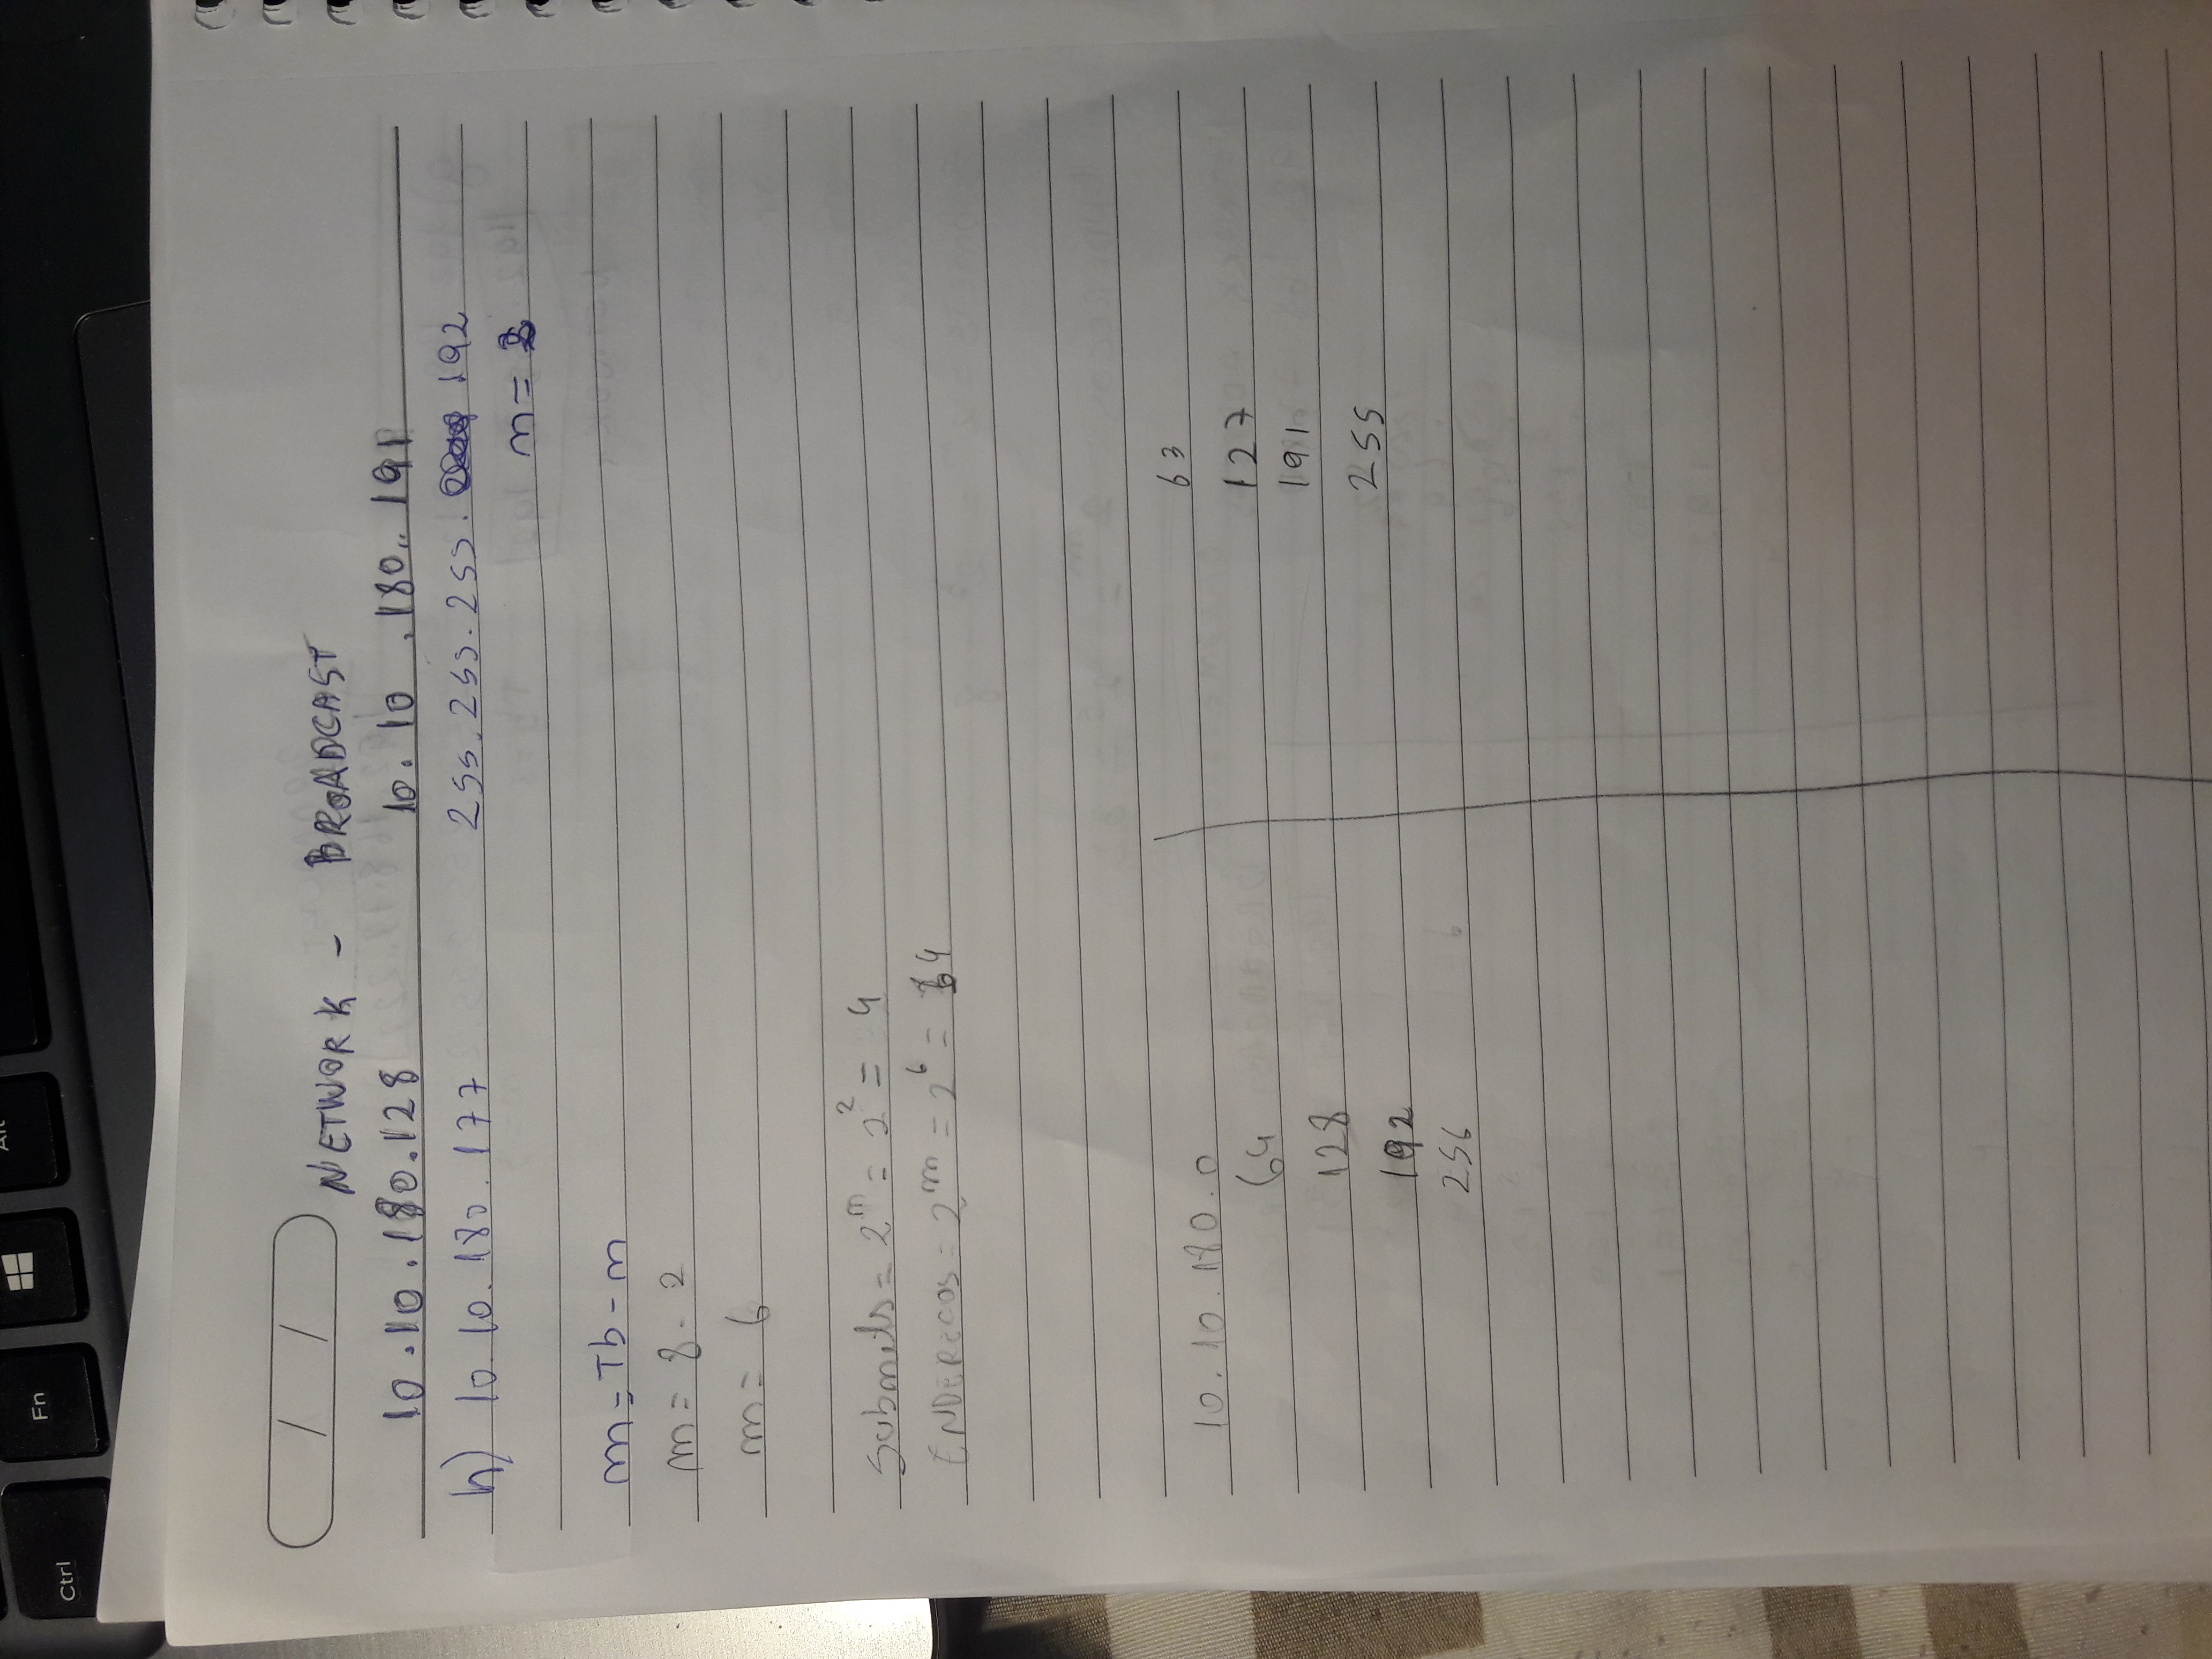 Ctrl Fn Alt
/ /
NETWORK - BROADCAST
10.10.180.128 10.10.180..191
h) 10.10.180.177 255.255.255. 192
n =
m = Tb - n
m = 8 - 2
m = 6
Subnets = 2^n = 2^2 = 4
ENDERECOS = 2^m = 2^6 = 64
10.10.180.0 63
64 127
128 191
192 255
256